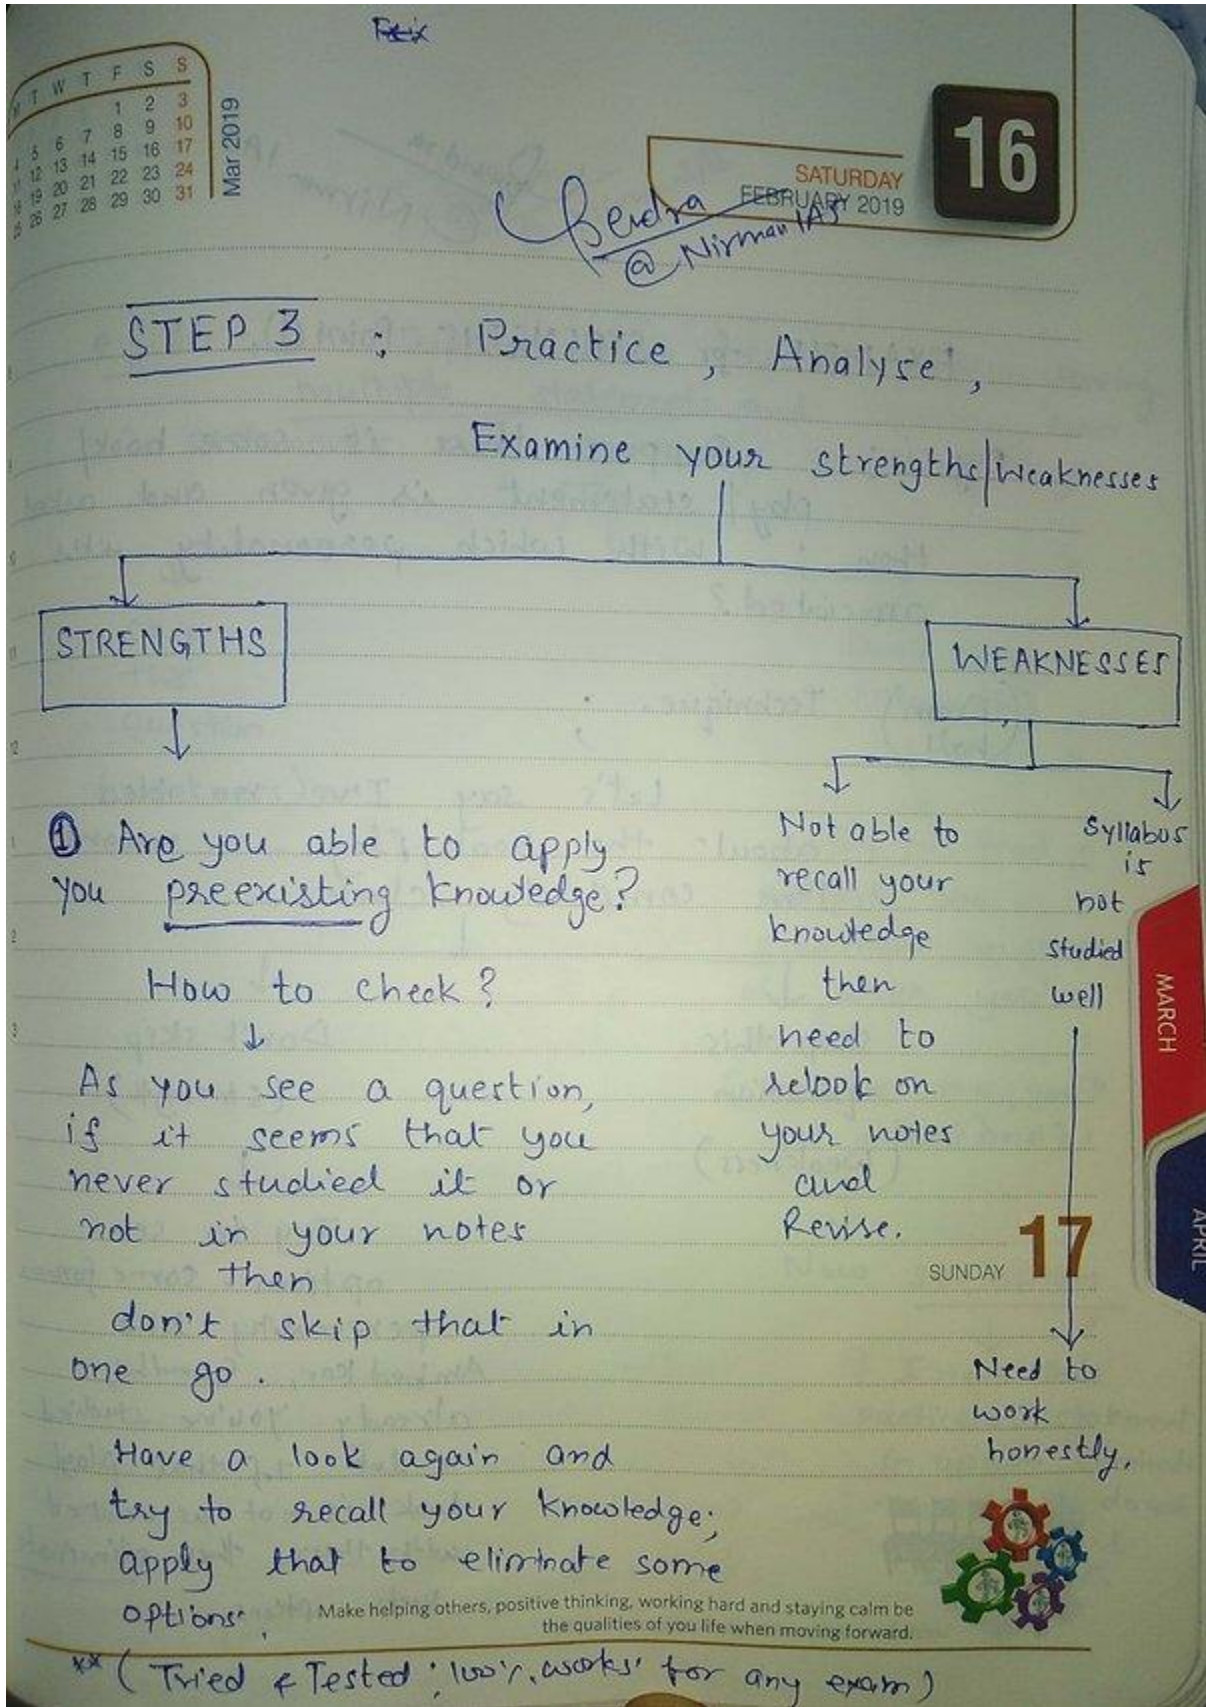 M T W T F S S
1 2 3
4 5 6 7 8 9 10
11 12 13 14 15 16 17
18 19 20 21 22 23 24
25 26 27 28 29 30 31
Mar 2019
16
SATURDAY
FEBRUARY 2019
@ Nirman IAS
STEP 3 : Practice, Analyse,
Examine your strengths/weaknesses
STRENGTHS
WEAKNESSES
① Are you able to apply
you preexisting knowledge?
How to check?
↓
As you see a question,
if it seems that you
never studied it or
not in your notes
then
don't skip that in
one go.
Have a look again and
try to recall your knowledge;
apply that to eliminate some
options.
Not able to
recall your
knowledge
then
need to
relook on
your notes
and
Revise.
Syllabus
is
not
studied
well
Need to
work
honestly.
MARCH
APRIL
SUNDAY 17
Make helping others, positive thinking, working hard and staying calm be
the qualities of you life when moving forward.
** (Tried & Tested; 100% works for any exam)